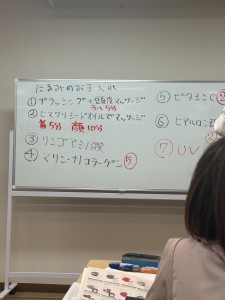 たるみのお手入れ
① ブラッシング+頭皮マッサージ
3~5分
② ヒマワリシードオイルでマッサージ
首5分 顔10分
③ リンゴ
④ マリン・ナノコラーゲン ⑤
⑤ ビタミンC
⑥ ヒアルロン
⑦ UV